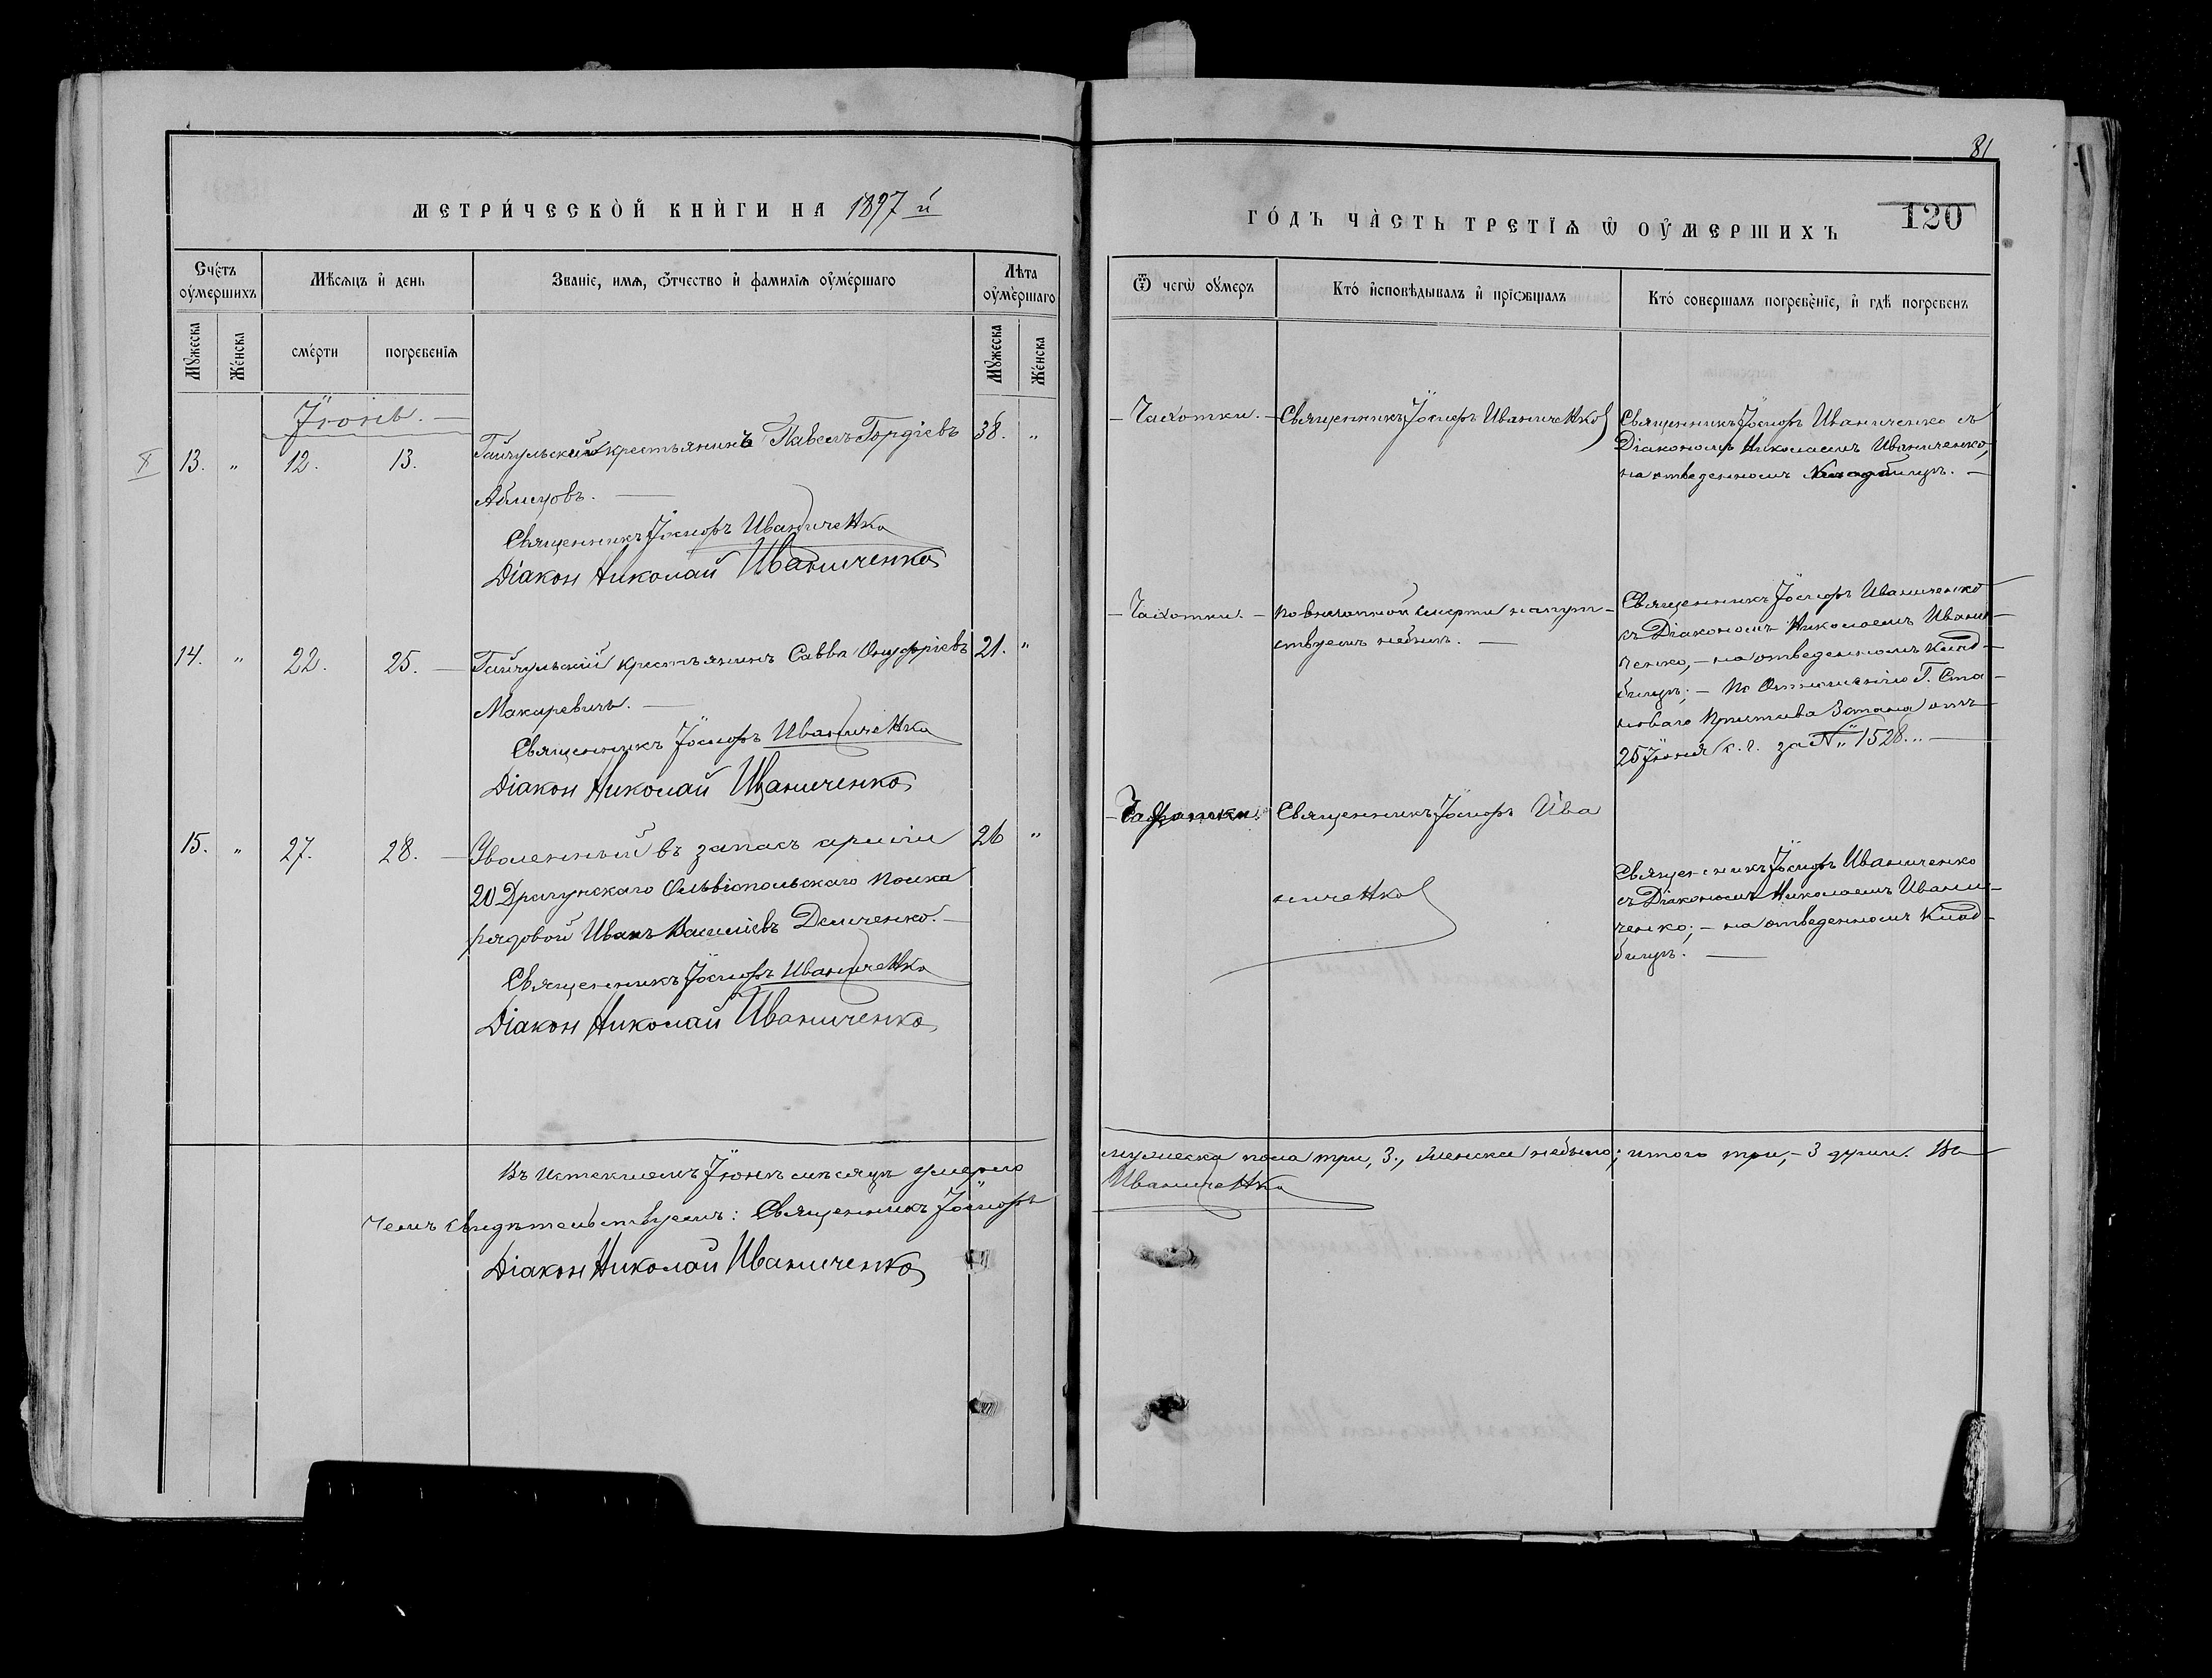 81
МЕТРИ́ЧЕСКО̀Й КНЍГИ НА 1897 й
ГО́ДЪ ЧА̀СТЬ ТРЕТІѦ Ѡ҆ ОУ҆́МЕРШИХЪ
120
Сче́тъ оу҆́мершихъ
Мѣсѧцъ и҆ день
Званіе, имѧ, ѻ҆тчество и҆ фамилїѧ оу҆ме́ршаго
Лѣта оу҆мѐршаго
Ѿ чегѡ̀ оу́меръ
Кто́ и҆сповѣдывалъ и҆ прїѡбщалъ
Кто́ совершалъ погребе́нїе, и҆ гдѣ погребенъ
Мꙋ́жеска
Же́нска
сме́рти
погребе́нїѧ
Мꙋ́жеска
Же́нска
Іюнь. —
X 13. " 12. 13.
Гайчульскій крестьянинъ Павелъ Гордіевъ
38. "
Аблицовъ. —
Священникъ Іосифъ Иваниченко
Діакон Николай Иваниченко
— Чахотки. —
Священникъ Іосифъ Иваниченко
Священникъ Іосифъ Иваниченко съ
Діакономъ Николаемъ Иваниченко,
на отведенномъ Кладбищѣ. —
14. " 22. 25. —
Гайчульскій крестьянинъ Савва Онуфріевъ
21. "
Макаревичъ. —
Священникъ Іосифъ Иваниченко
Діакон Николай Иваниченко
— Чахотки. —
По внезапной смерти напут-
ствуемъ небылъ. —
Священникъ Іосифъ Иваниченко
съ Діакономъ Николаемъ Ивани-
ченко, — на отведенномъ Клад-
бищѣ; — По Отношенію Г. Ста-
новаго Пристава 3 стана отъ
25 Іюня с. г. за №" 1528.." —
15. " 27. 28. —
Уволенный въ запасъ арміи
26 "
20 Драгунскаго Ольвіопольскаго Полка
рядовой Иванъ Василіевъ Демченко. —
Священникъ Іосифъ Иваниченко
Діакон Николай Иваниченко
— Чахотки.
Священникъ Іосифъ Ива
ниченко
Священникъ Іосифъ Иваниченко
съ Діакономъ Николаемъ Ивани-
ченко; — на отведенномъ Клад-
бищѣ. —
Въ истекшемъ Іюнѣ мѣсяцѣ умерло
мужеска пола три, 3., женска небыло; итого три, – 3 души. Въ
чемъ свидѣтельствуемъ: Священникъ Іосифъ
Иваниченко
Діакон Николай Иваниченко